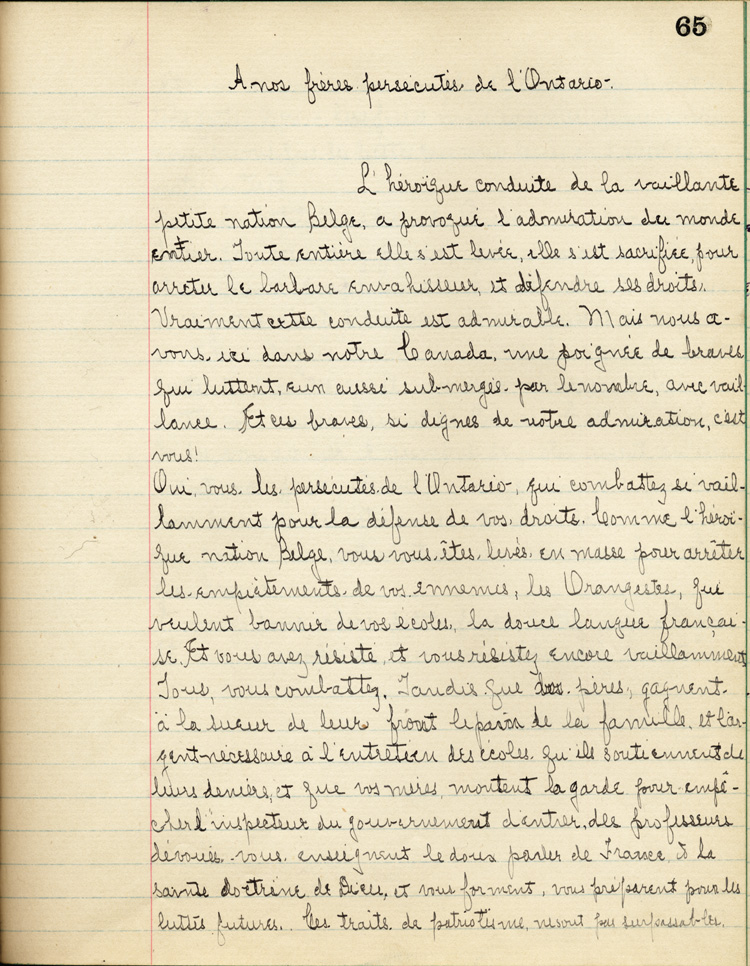 65
A nos frères persécutés de l'Ontario.
L'héroïque conduite de la vaillante
petite nation Belge, a provoqué l'admiration du monde
entier. Toute entière elle s'est levée, elle s'est sacrifiée, pour
arreter le barbare envahisseur, et défendre ses droits.
Vraiment cette conduite est admirable. Mais nous a-
vons ici dans notre Canada, une poignée de braves
qui luttent, eux aussi submergés par le nombre, avec vail-
lance. Et ces braves, si dignes de notre admiration, c'est
vous!
Oui, vous les persécutés de l'Ontario, qui combattez si vail-
lamment pour la défense de vos droits. Comme l'héroï-
que nation Belge, vous vous êtes levés en masse pour arrêter
les empiètements de vos ennemis, les Orangistes, qui
veulent bannir de vos écoles, la douce langue françai-
se. Et vous avez résisté, et vous résistez encore vaillamment
Tous, vous combattez. Tandis que vos pères, gagnent
à la sueur de leur front le pain de la famille, et l'ar-
gent nécessaire à l'entretien des écoles qu'ils soutiennent de
leurs deniers, et que vos mères, montent la garde pour empê-
cher l'inspecteur du gouvernement d'entrer, des professeurs
dévoués vous enseignent le doux parler de France, & la
sainte doctrine de Dieu, et vous forment, vous préparent pour les
luttes futures. Ces traits de patriotisme, ne sont pas surpassables.